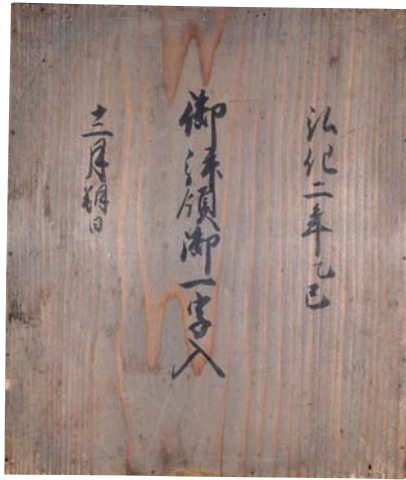 弘化二年乙巳
御拝領御一字入
十二月朔日